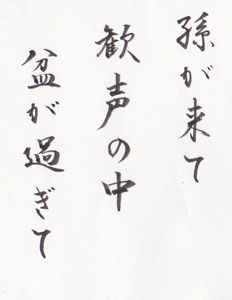 孫が来て
歓声の中
盆が過ぎて